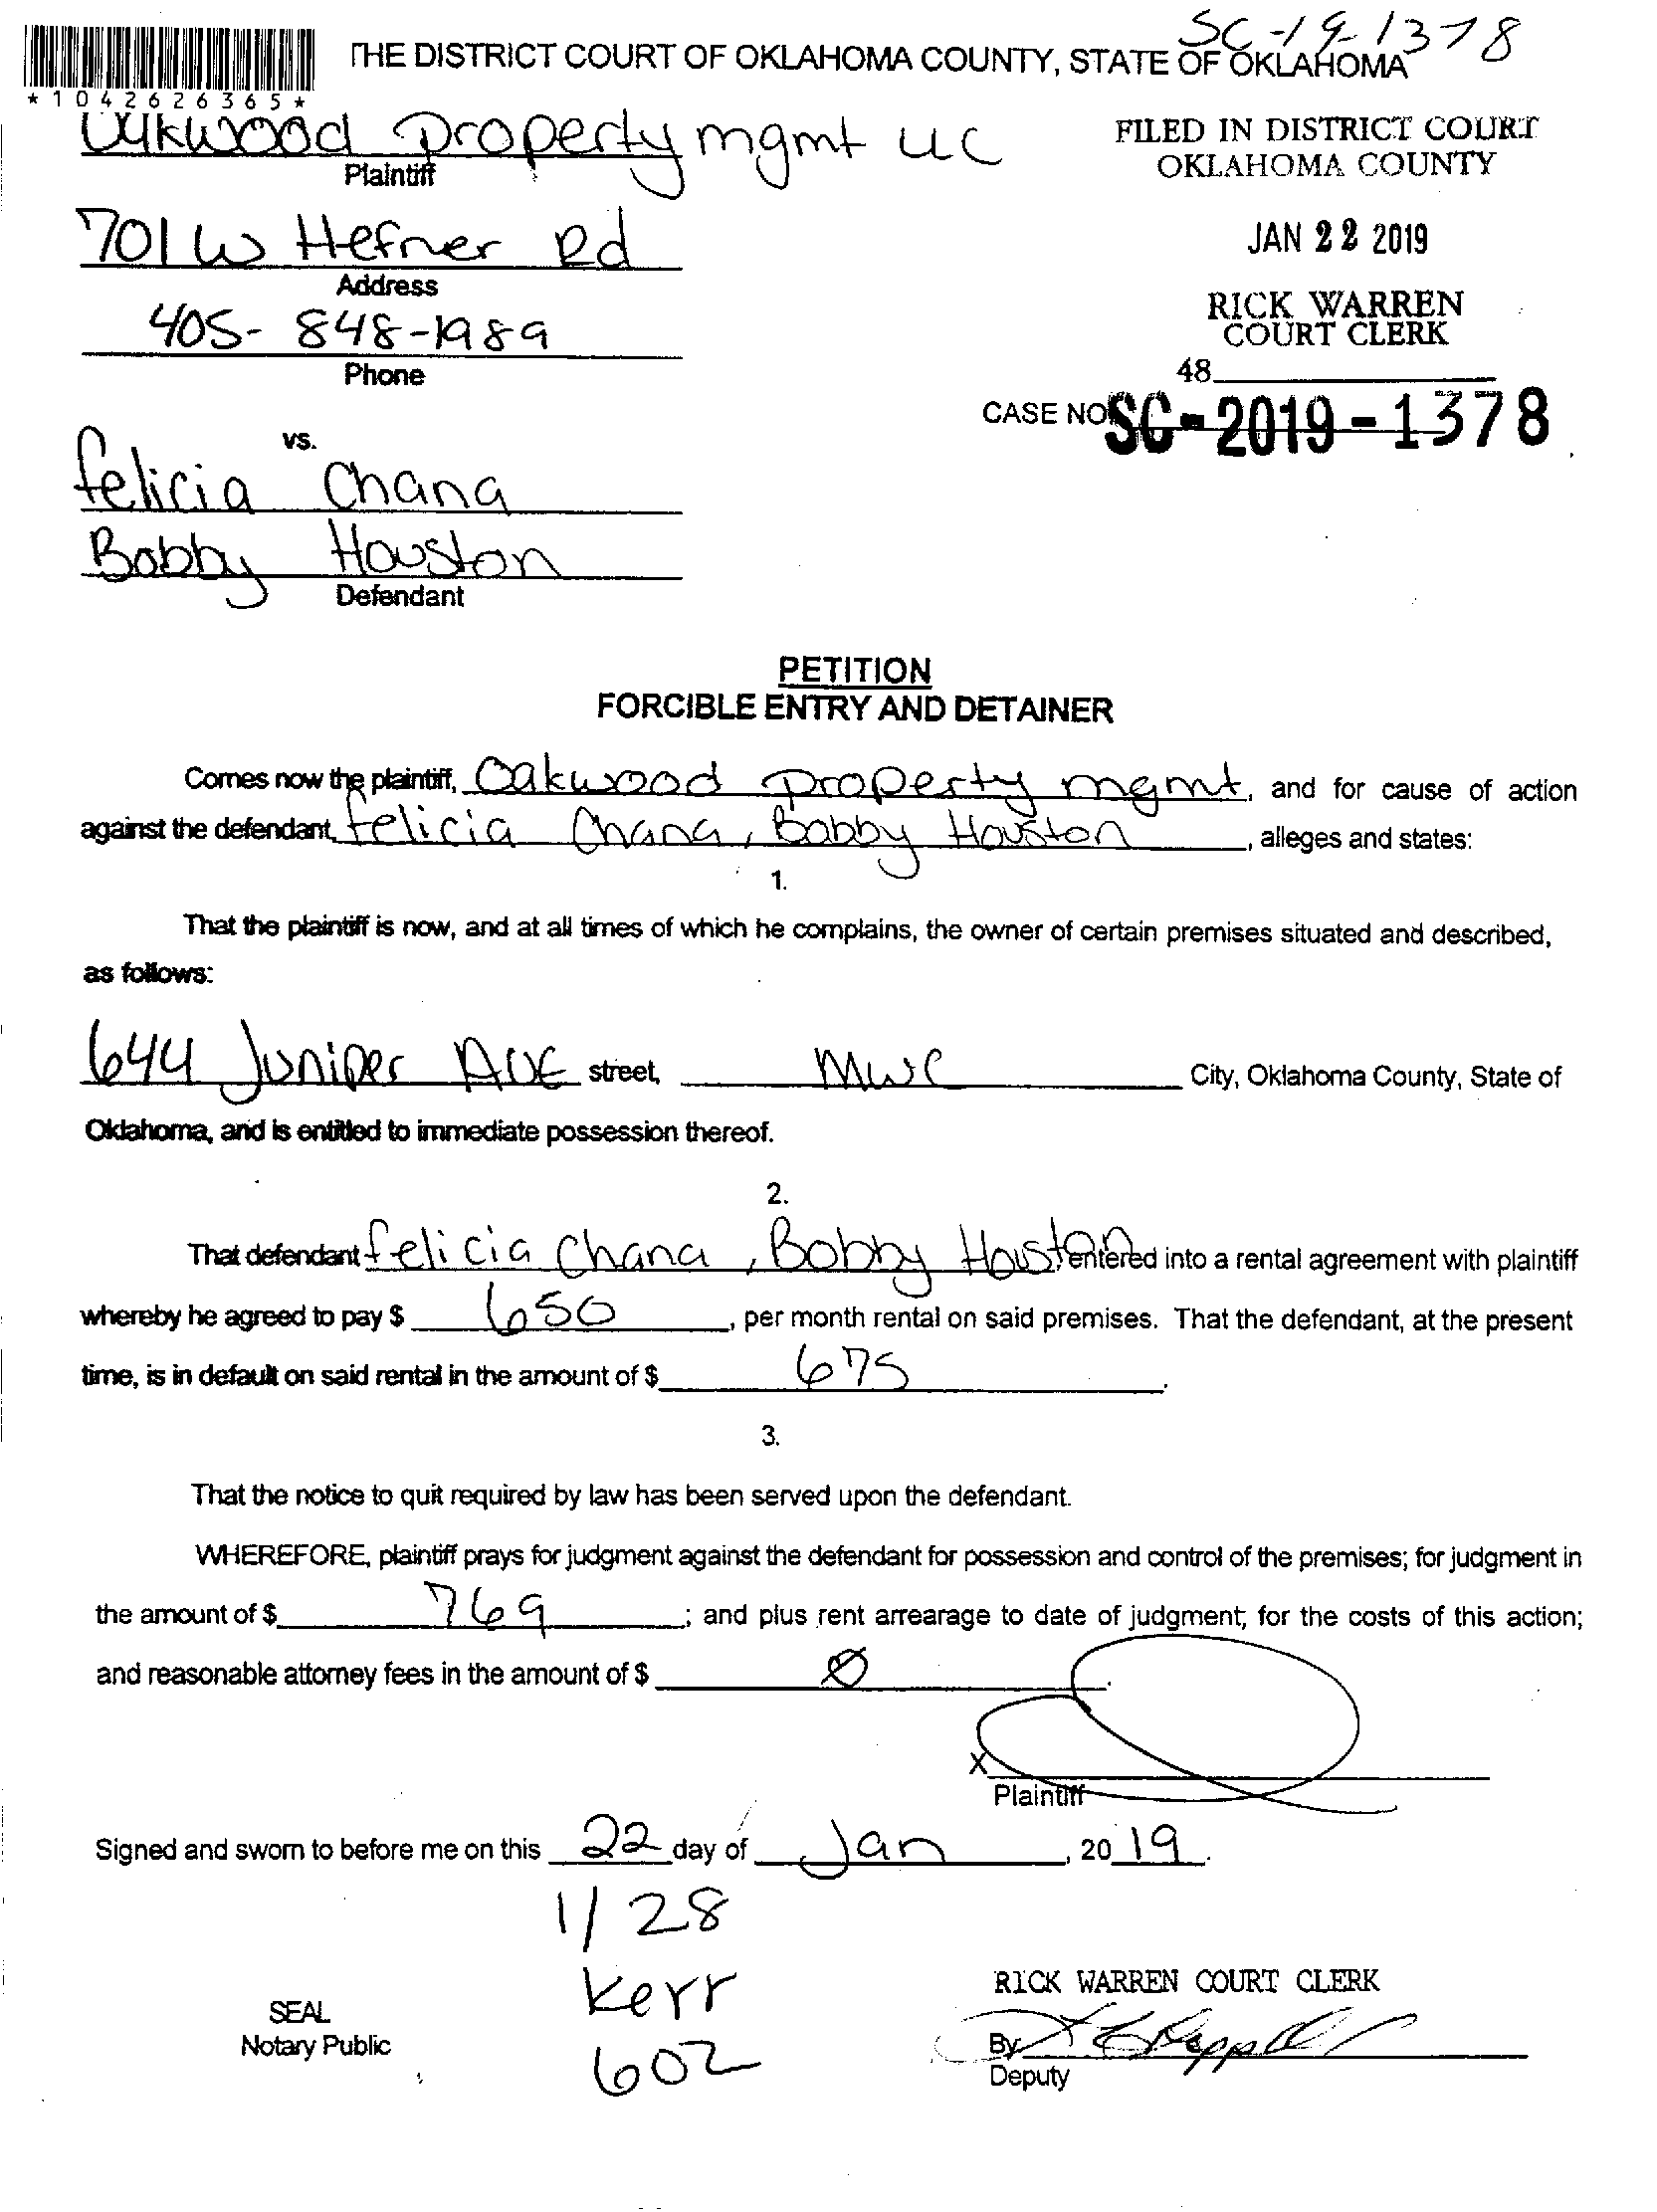 SC-19-1378
THE DISTRICT COURT OF OKLAHOMA COUNTY, STATE OF OKLAHOMA
*1042626365*
Oakwood Property mgmt LLC
Plaintiff
FILED IN DISTRICT COURT
OKLAHOMA COUNTY
701 W Hefner Rd
Address
JAN 22 2019
405-848-1989
Phone
RICK WARREN
COURT CLERK
48
CASE NO SC-2019-1378
vs.
felicia Chana
Bobby Houston
Defendant
PETITION
FORCIBLE ENTRY AND DETAINER
Comes now the plaintiff, Oakwood Property mgmt, and for cause of action
against the defendant, felicia Chana, Bobby Houston, alleges and states:
1.
That the plaintiff is now, and at all times of which he complains, the owner of certain premises situated and described,
as follows:
644 Juniper AVE street, MWC City, Oklahoma County, State of
Oklahoma, and is entitled to immediate possession thereof.
2.
That defendant felicia Chana, Bobby Houston entered into a rental agreement with plaintiff
whereby he agreed to pay $ 650, per month rental on said premises. That the defendant, at the present
time, is in default on said rental in the amount of $ 675.
3.
That the notice to quit required by law has been served upon the defendant.
WHEREFORE, plaintiff prays for judgment against the defendant for possession and control of the premises; for judgment in
the amount of $ 769; and plus rent arrearage to date of judgment; for the costs of this action;
and reasonable attorney fees in the amount of $ 0.
X
Plaintiff
Signed and sworn to before me on this 22 day of Jan, 2019.
1/28
Kerr
602
SEAL
Notary Public
RICK WARREN COURT CLERK
By
Deputy